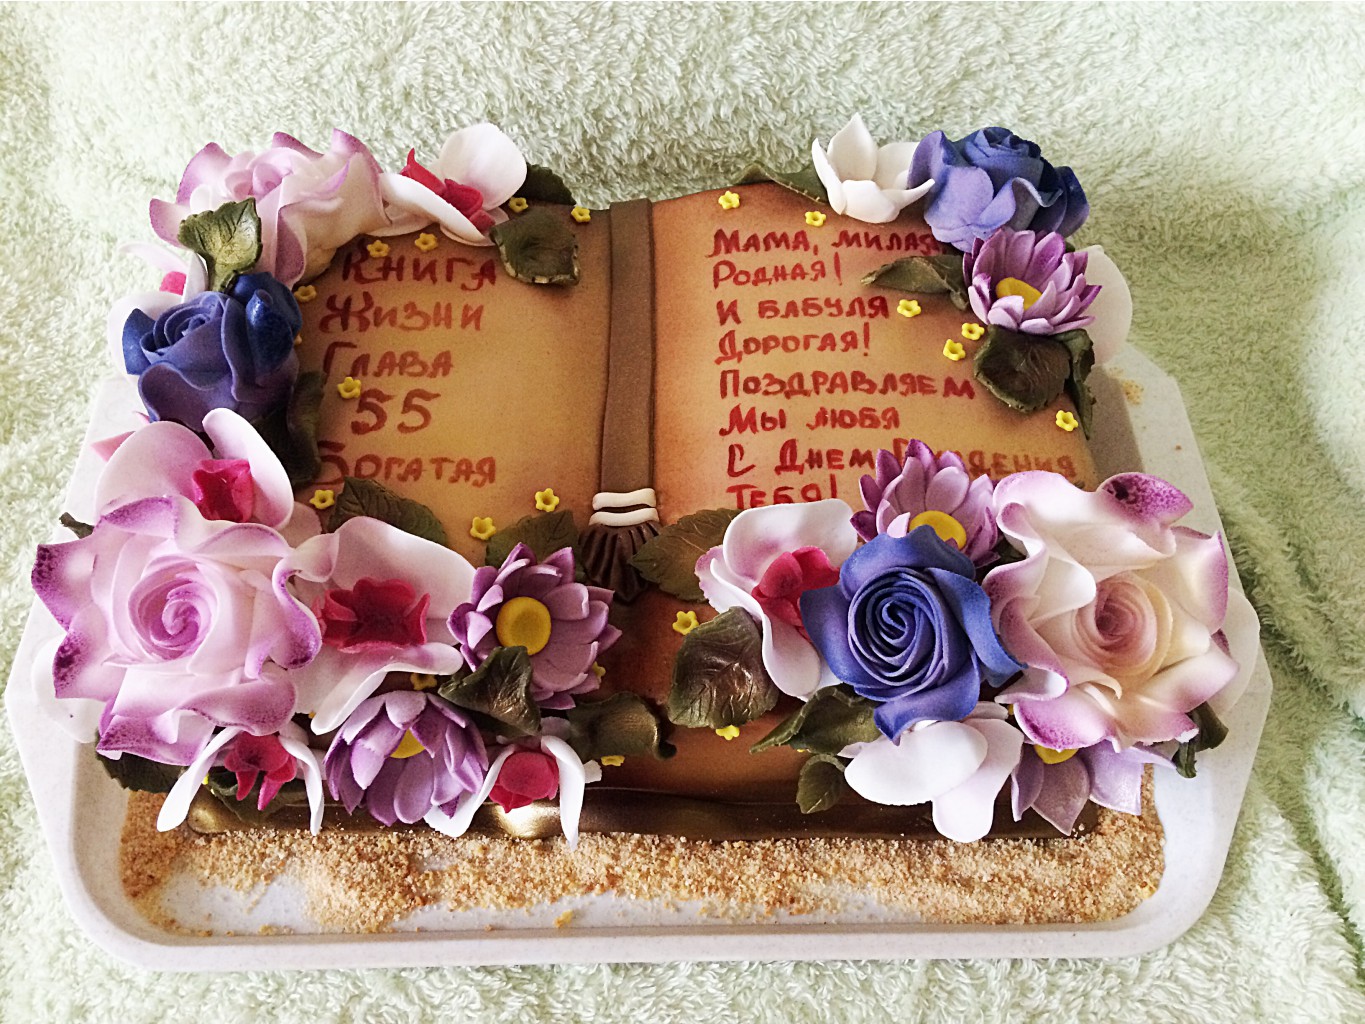 Книга
Жизни
Глава
55
Богатая
Мама, милая
Родная!
И бабуля
Дорогая!
Поздравляем
Мы любя
С Днем Рождения
Тебя!